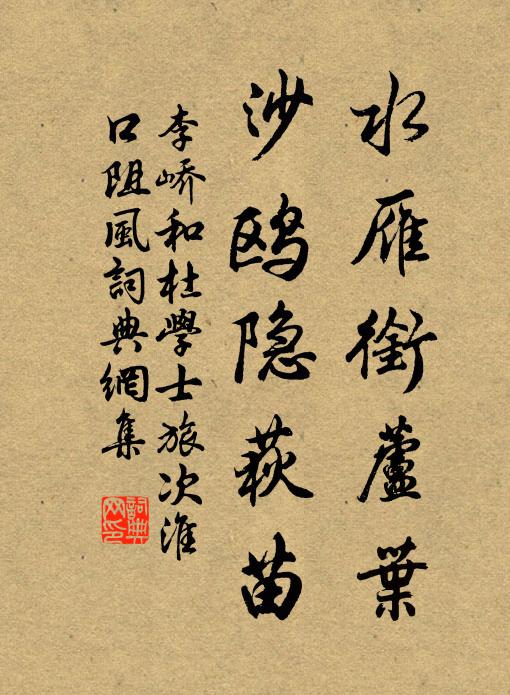 水雁銜蘆葉
沙鸥隐荻苗
李峤和杜學士旅次淮
口阻風詞典網集
詞典
网印